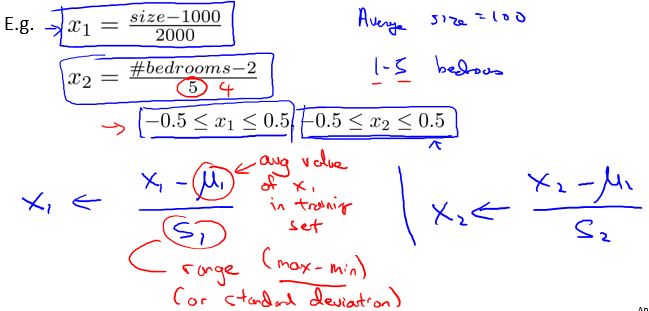 E.g. → x₁ = (size−1000)/2000 Average size = 100
x₂ = (#bedrooms−2)/5 4 1-5 bedrooms
→ −0.5 ≤ x₁ ≤ 0.5, −0.5 ≤ x₂ ≤ 0.5
x₁ ← (x₁ − μ₁)/S₁ ← avg value
of x₁
in training
set
x₂ ← (x₂ − μ₂)/S₂
range (max-min)
(or standard deviation)